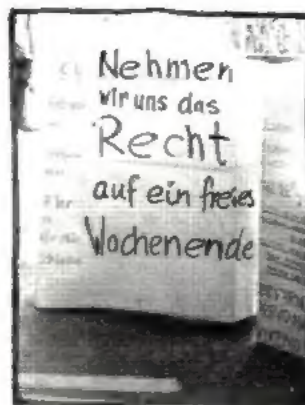 Nehmen
wir uns das
Recht
auf ein freies
Wochenende